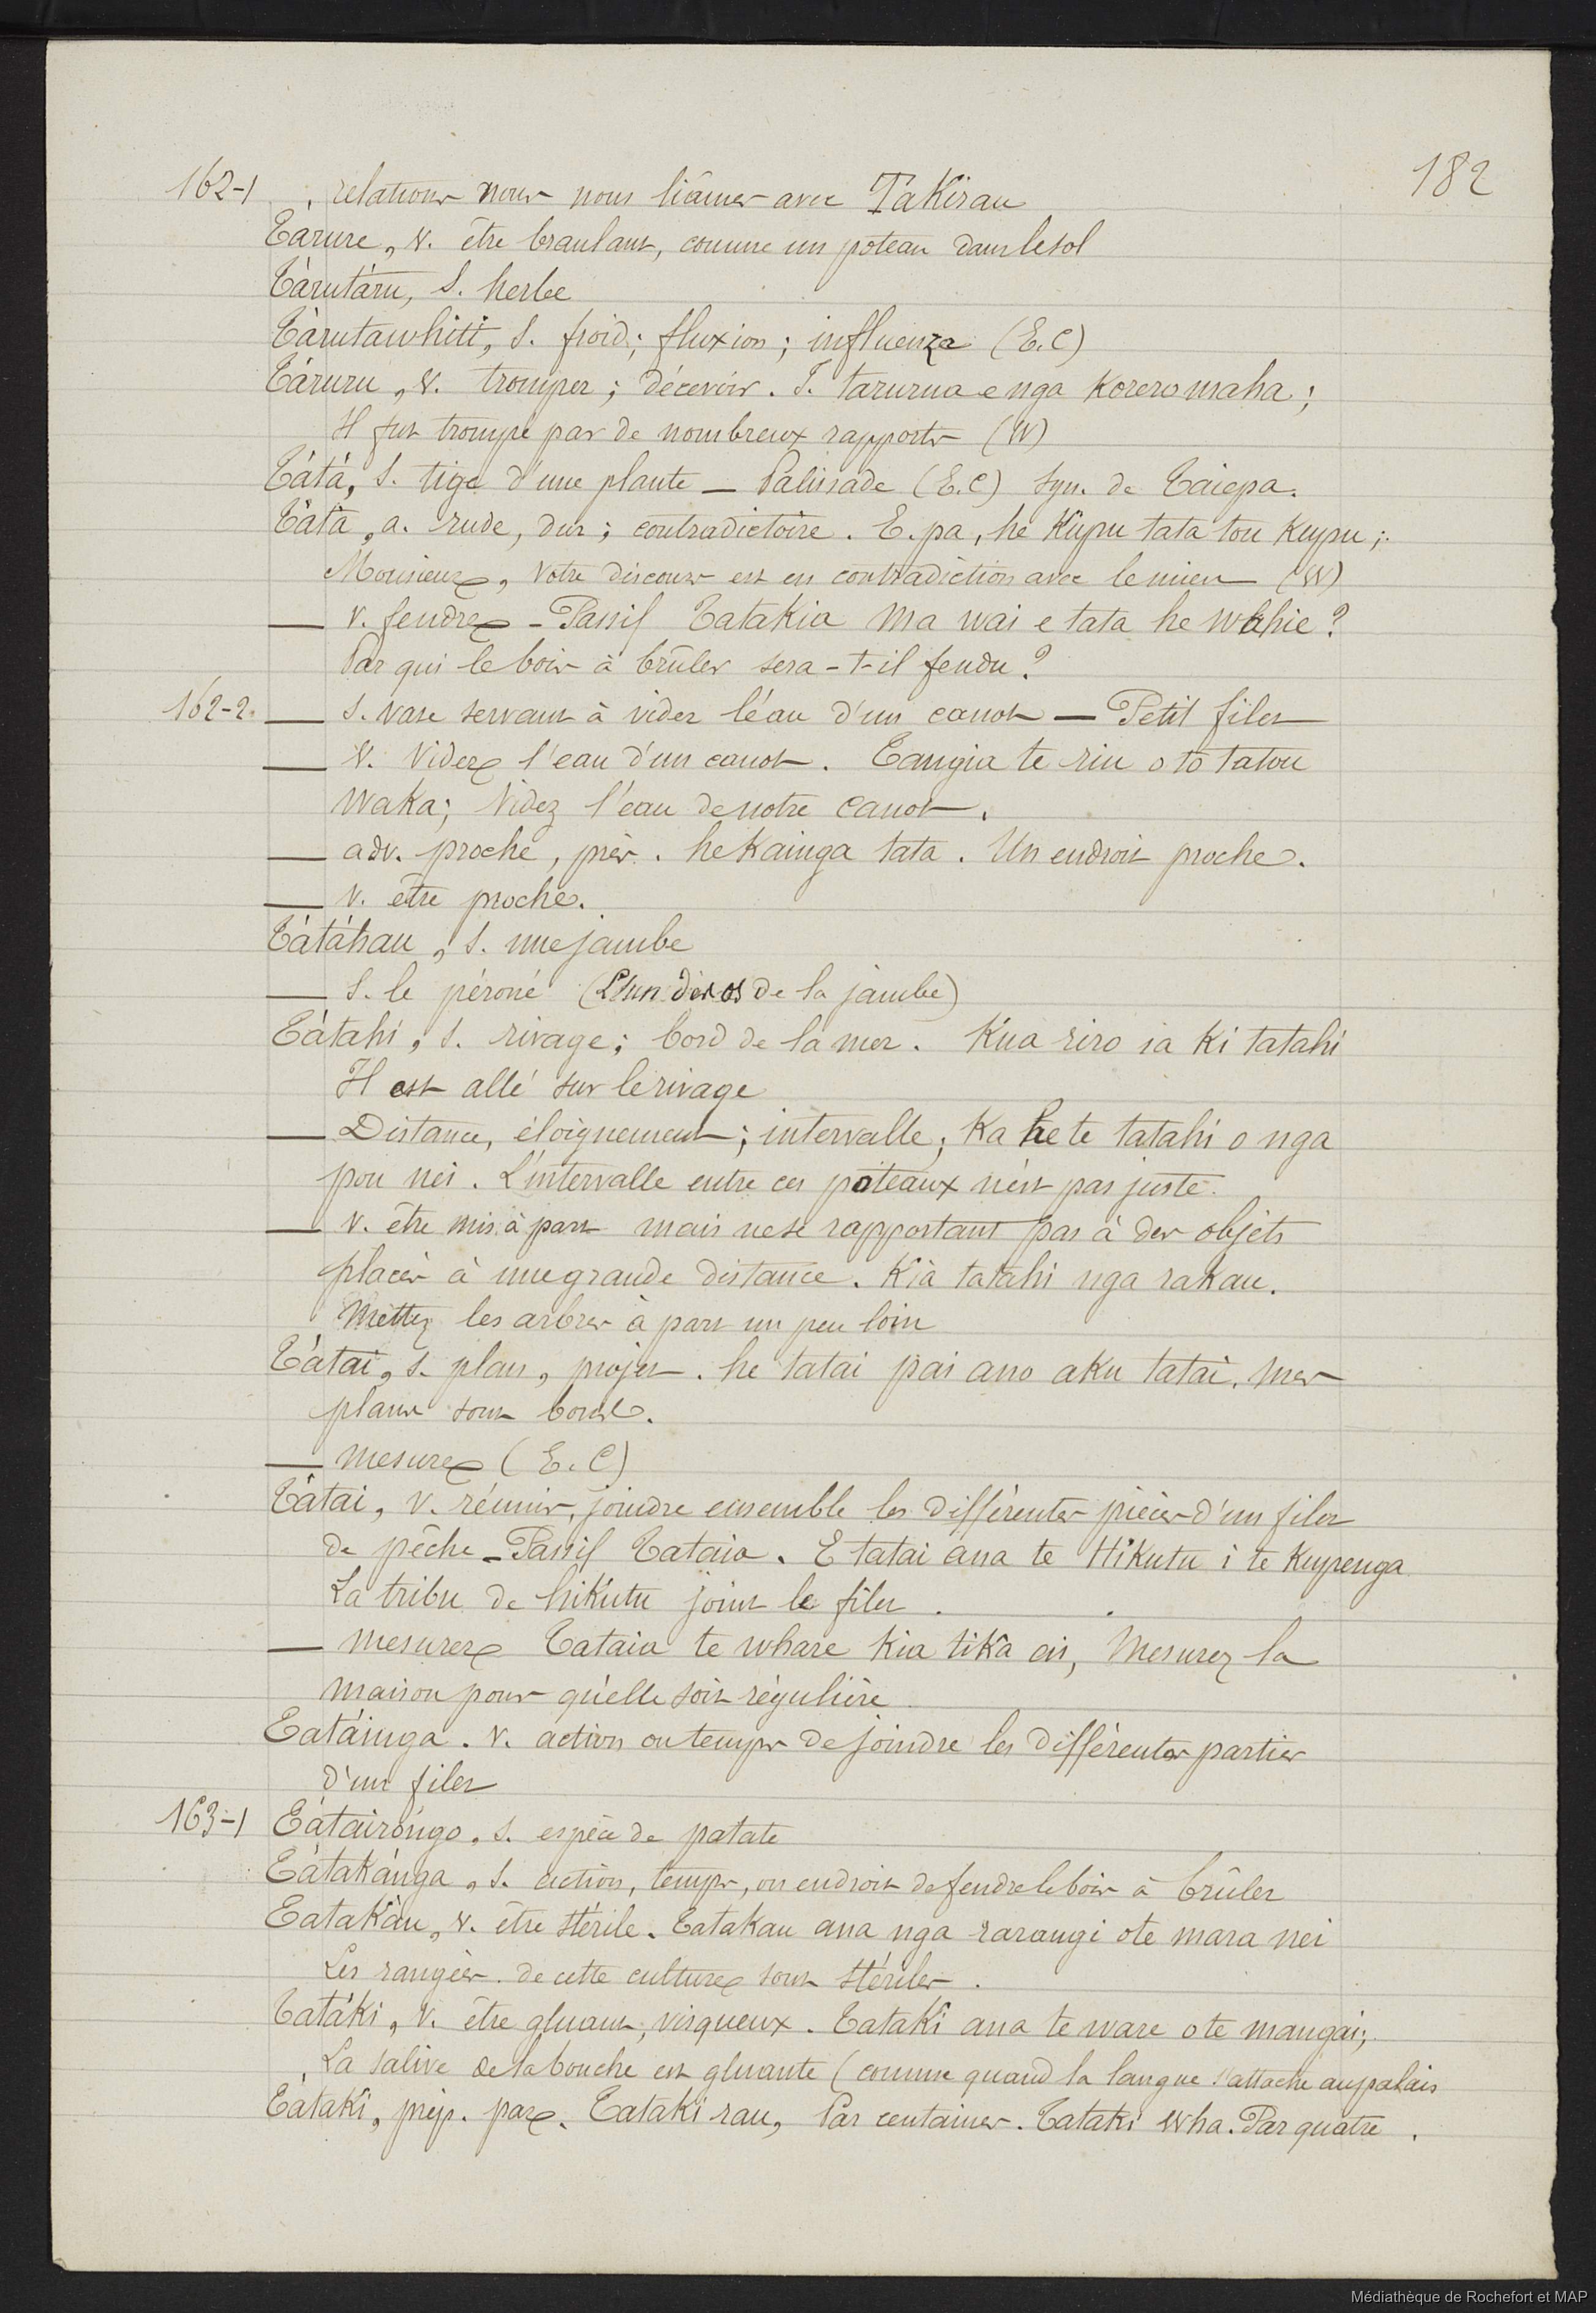 182
162-1 relations nous nous liâmes avec Takirau
Tarure, v. être branlant, comme un poteau dans le sol
Tárutáru, s. herbe
Tárutawhiti, s. froid; fluxion; influenza (E.C)
Táruru, v. tromper; décevoir. I. tarurua e nga korero maha;
Il fut trompé par de nombreux rapports (W)
Tátá, s. tige d'une plante — Palissade (E.C) syn. de Taiepa.
Tátá, a. rude, dur; contradictoire. E. pa, he kupu tata tou kupu;
Monsieur, votre discours est en contradiction avec le mien (W)
— v. fendre - Passif Tatakia Ma wai e tata he wahie?
Par qui le bois à brûler sera-t-il fendu?
162-2. — s. vase servant à vider l'éau d'un canot — Petit filet
— v. Vider l'eau d'un canot. Tangia te riu o to tatou
waka; Videz l'eau de notre canot.
— adv. proche, près. he kainga tata. Un endroit proche.
— v. être proche.
Tátáhau, s. une jambe
— s. le péroné (L'un des os de la jambe)
Tátahi, s. rivage; bord de la mer. Kua riro ia ki tatahi
Il est allé sur le rivage
— Distance, éloignement; intervalle; Ka he te tatahi o nga
pou nei. L'intervalle entre ces poteaux n'est pas juste.
— v. être mis à part mais ne se rapportant pas à des objets
placés à une grande distance. Kia tatahi nga rakau.
Mettez les arbres à part un peu loin
Tátai, s. plan, projet. he tatai pai ano aku tatai. Mes
plans sont bons.
— mesure (E.C)
Tátai, v. réunir, joindre ensemble les différentes pièces d'un filet
de pêche - Passif Tataia. E tatai ana te Hikutu i te kupenga
La tribu de hikutu joint le filet.
— mesurer Tataia te whare kia tika ai, Mesurez la
maison pour qu'elle soit régulière.
Tatáinga. v. action ou temps de joindre les différentes parties
d'un filet
163-1 Tátairóngo. s. espèce de patate
Tátakánga, s. action, temps, ou endroit de fendre le bois à brûler
Tatakàu, v. être stérile. Tatakau ana nga rarangi o te mara nei
Les rangées de cette culture sont stériles.
Tatáki, v. être gluant, visqueux. Tataki ana te ware o te mangai;
La salive de la bouche est gluante (comme quand la langue s'attache au palais
Tataki, prép. par. Tataki rau, Par centaines. Tataki wha. Par quatre.
Médiathèque de Rochefort et MAP